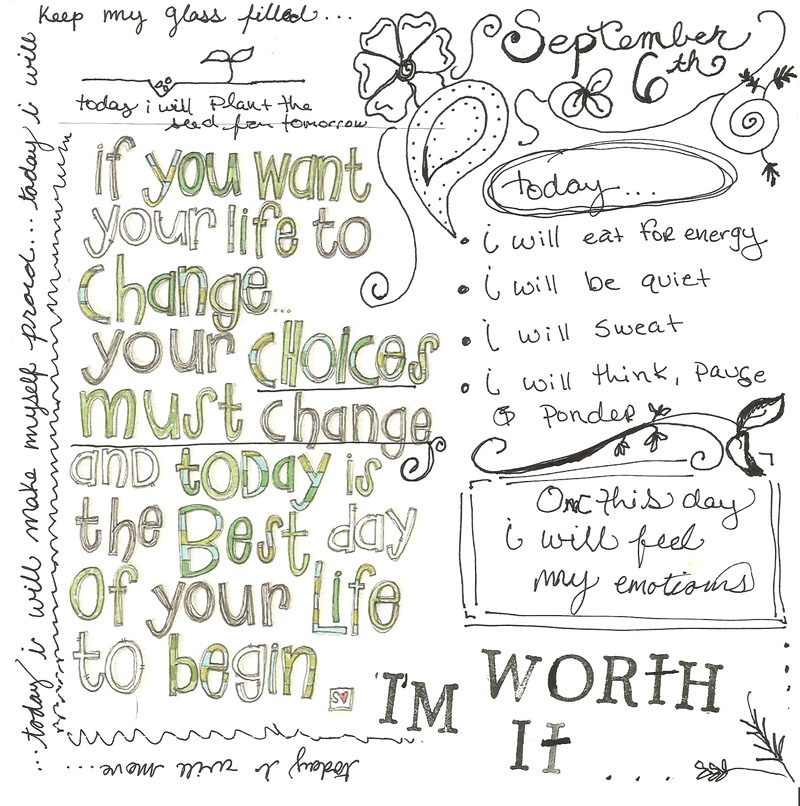 keep my glass filled...
today i will plant the
seed for tomorrow
if you want
your life to
change...
your choices
must change
and today is
the Best day
Of your Life
to begin
S
September
6th
today...
• i will eat for energy
• i will be quiet
• i will sweat
• i will think, pause
& ponder
On this day
i will feel
my emotions
I'M WORTH
IT....
today i will move...
...today i will make myself proud... today i will